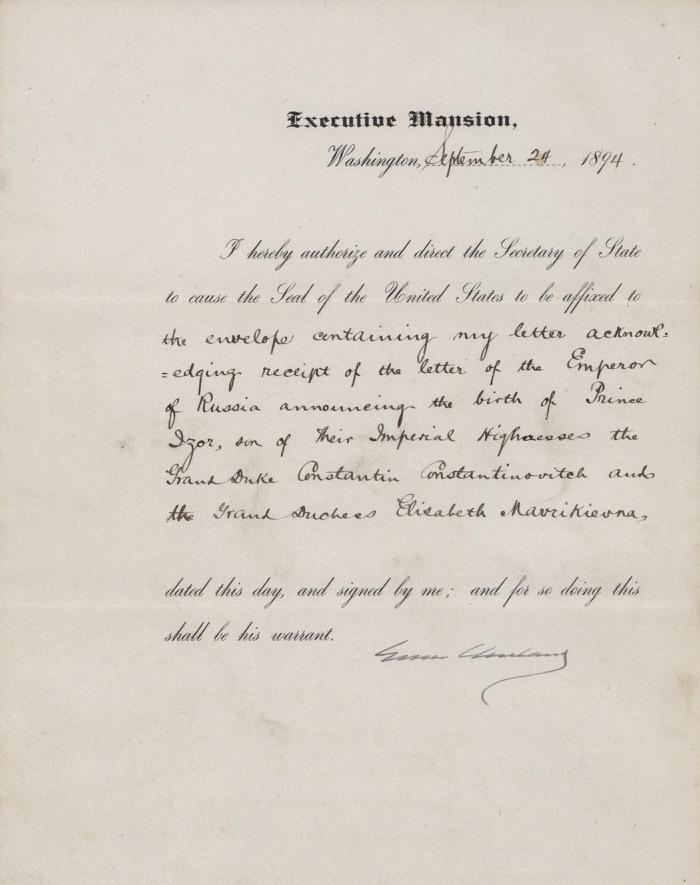 Executive Mansion,
Washington, September 24, 1894.
I hereby authorize and direct the Secretary of State
to cause the Seal of the United States to be affixed to
the envelope containing my letter acknowl=
=edging receipt of the letter of the Emperor
of Russia announcing the birth of Prince
Igor, son of Their Imperial Highnesses the
Grand Duke Constantin Constantinovitch and
the Grand Duchess Elisabeth Mavrikievna,
dated this day, and signed by me; and for so doing this
shall be his warrant.
Grover Cleveland